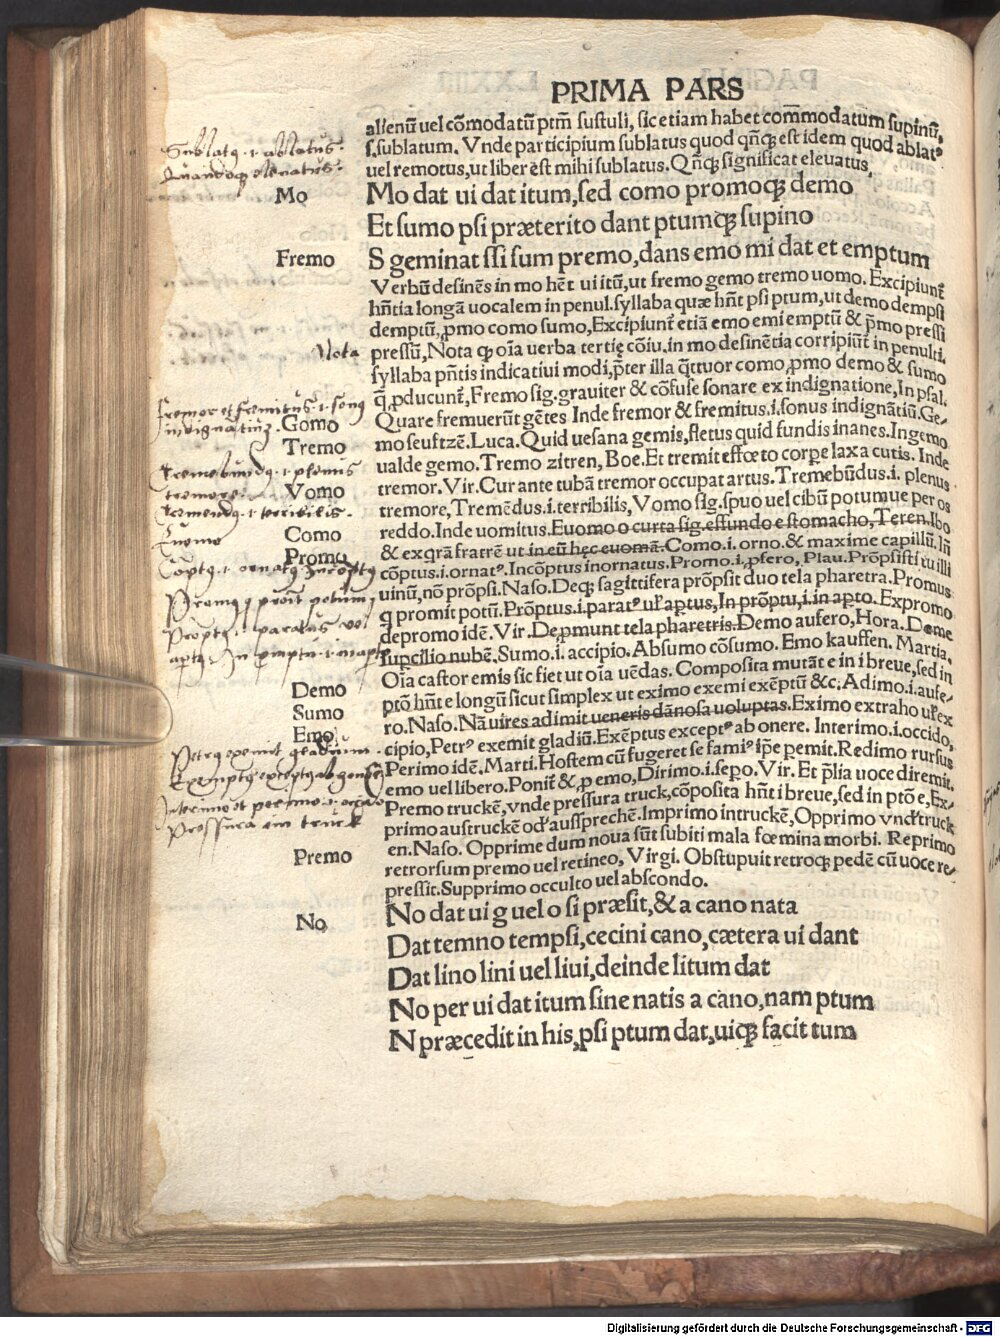 PRIMA PARS
alienū uel cōmodatū ptm̄ sustuli, sic etiam habet com̄modatum supinū,
s.sublatum. Vnde participium sublatus quod qñqȝ est idem quod ablatꝰ
uel remotus,ut liber est mihi sublatus. Qñqȝ significat eleuatus,
Sublatꝰ .i. ablatus
Quandoqȝ eleuatus.
Mo
Mo dat ui dat itum,sed como promoqȝ demo
Et sumo psi præterito dant ptumqȝ supino
Fremo
S geminat ssi sum premo,dans emo mi dat et emptum
Verbū desinēs in mo hēt ui itū,ut fremo gemo tremo uomo. Excipiunť
hñtia longā uocalem in penul.syllaba quæ hñt psi ptum,ut demo dempsi
demptū,ꝓmo como sumo,Excipiunť etiā emo emi emptū & p̄mo pressi
Nota
pressū,Nota qꝫ oīa uerba tertię cōiu.in mo desinētia corripiūť in penulti.
syllaba pñtis indicatiui modi,p̄ter illa q̄ttuor como,ꝓmo demo & sumo
q̄ ꝓducunť,Fremo sig.grauiter & cōfuse sonare ex indignatione,In psal.
Fremor et fremitus .i. sonꝰ
indignatiuꝰ.
Quare fremuerūt gētes Inde fremor & fremitus.i.sonus indignātiū.Ge-
Gomo
mo seuftzē.Luca.Quid uesana gemis,fletus quid fundis inanes.Ingemo
Tremo
ualde gemo.Tremo zitren, Boe.Et tremit effœto corpe laxa cutis. Inde
Tremebundꝰ .i. plenus
tremore
tremor. Vir.Cur ante tubā tremor occupat artus.Tremebūdus.i. plenus
Vomo
tremore,Tremēdus.i.terribilis, Vomo sig.spuo uel cibū potumue per os
Tremendꝰ .i. terribilis.
reddo.Inde uomitus.Euomo o curta sig.effundo e stomacho,Teren.Ibo
Como
Euomo
& exqrā fratrē ut in eū hęc euomā.Como.i.orno.& maxime capillū.Iñ
Promo
Cōptꝰ .i. ornatꝰ Incōptꝰ
cōptus.i.ornatꝰ.Incōptus inornatus.Promo.i.ꝓfero, Plau.Prōpsisti tu illi
uinū,nō prōpsi.Naso.Deqȝ sagittifera prōpsit duo tela pharetra.Promus
q promit potū.Prōptus.i.paratꝰ uł aptus,In prōptu,i.in apto.Expromo
Prōptꝰ .i. paratus vel
depromo idē.Vir.Deꝓmunt tela pharetris.Demo aufero,Hora.Deme
aptꝰ. In prōptu .i. in apto
supcilio nubē.Sumo.i.accipio.Absumo cōsumo. Emo kauffen. Martia.
Oīa castor emis sic fiet ut oīa uēdas. Composita mutāt e in i breue,sed in
Demo
ptō hñt e longū sicut simplex ut eximo exemi exēptū &c.Adimo.i.aufe-
Sumo
ro.Naso.Nā uires adimit ueneris dānosa uoluptas.Eximo extraho uł ex
Emo
cipio,Petrꝰ exemit gladiū.Exēptus exceptꝰ ab onere. Interimo.i.occido,
Petrꝰ exemit gladium.
Perimo idē.Marti.Hostem cū fugeret se famiꝰ ip̄e pemit.Redimo rursus
emo uel libero.Poniť & ꝓ emo,Dirimo.i.sepo.Vir. Et p̄lia uoce diremit.
Interimo et perimo .i. occido
Premo truckē,vnde pressura truck,cōposita hñt i breue,sed in ptō e,Ex-
Pressura ein truck
primo austruckē oď aussprechē.Imprimo intruckē,Opprimo vnďtruck
en.Naso. Opprime dum noua sūt subiti mala fœmina morbi. Reprimo
Premo
retrorsum premo uel retineo, Virgi. Obstupuit retroqȝ pedē cū uoce re-
pressit.Supprimo occulto uel abscondo.
No
No dat ui g uel o si præsit,& a cano nata
Dat temno tempsi,cecini cano,cætera ui dant
Dat lino lini uel liui,deinde litum dat
No per ui dat itum sine natis a cano,nam ptum
N præcedit in his,psi ptum dat,uiqȝ facit tum
Digitalisierung gefördert durch die Deutsche Forschungsgemeinschaft - DFG